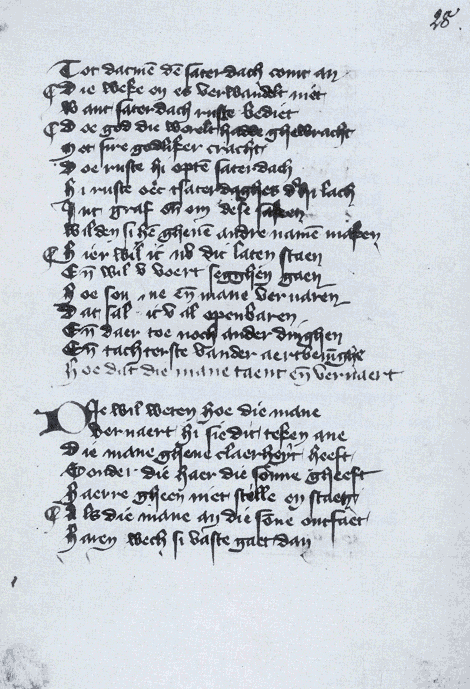 28.
Tot datmē dē saterdach comt an
Die weke on es verwandelt niet
Want saterdach ruste bediet
Doe god die werelt hadde ghewracht
Met sire godliker cracht
Doe ruste hi optē saterdach
Hi ruste oec tsaterdaghes dʼhi lach
Int graf eñ om dese saken
Wilden si hē ghenē andre namē maken
Hier wil ic nv dit laten staen
Eñ wil v voert segghen gaen
Hoe son ne eñ mane vervaren
Dat sal ic v al openbaren
Eñ daer toe noch ander dinghen
Eñ tachterste vander aertbeuīghe
Hoe dat die mane taent eñ vervaert
Die wil weten hoe die mane
Vervaert hi sie dit teken ane
Die mane ghene claerheyt heeft
Vorder die haer die sonne gheeft
Haerre gheen niet stille en staen
Als die mane an die sōne ontfaet
Haren wech si vaste gaet dan